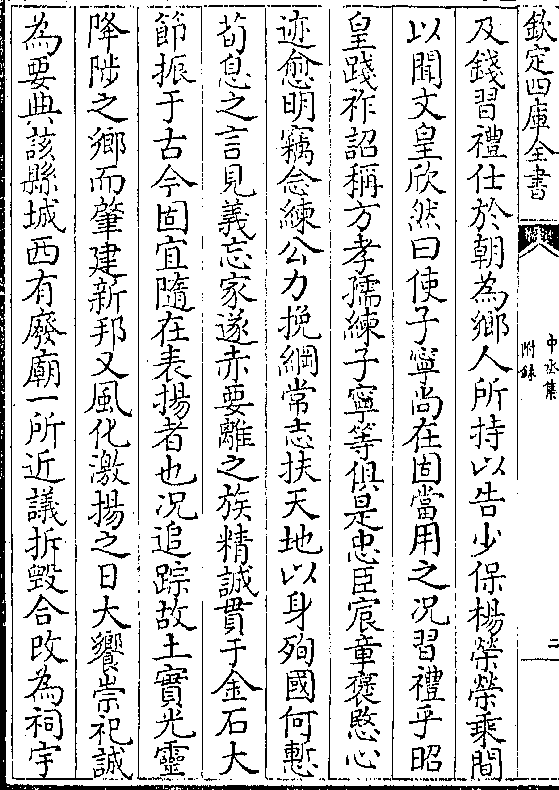 欽定四庫全書
中丞集
附錄
二
及錢習禮仕於朝為鄉人所持以告少保楊榮榮乗間
以聞文皇欣然曰使子寧尚在固當用之况習禮乎昭
皇踐祚詔稱方孝孺練子寧等俱是忠臣宸章褒愍心
迹愈明竊念練公力挽綱常志扶天地以身殉國何慙
荀息之言見義忘家遂赤要離之族精誠貫于金石大
節振于古今固宜隨在表揚者也况追踪故土實光靈
降陟之鄉而肇建新邦又風化激揚之日大饗崇祀誠
為要典該縣城西有廢廟一所近議拆毀合改為祠宇